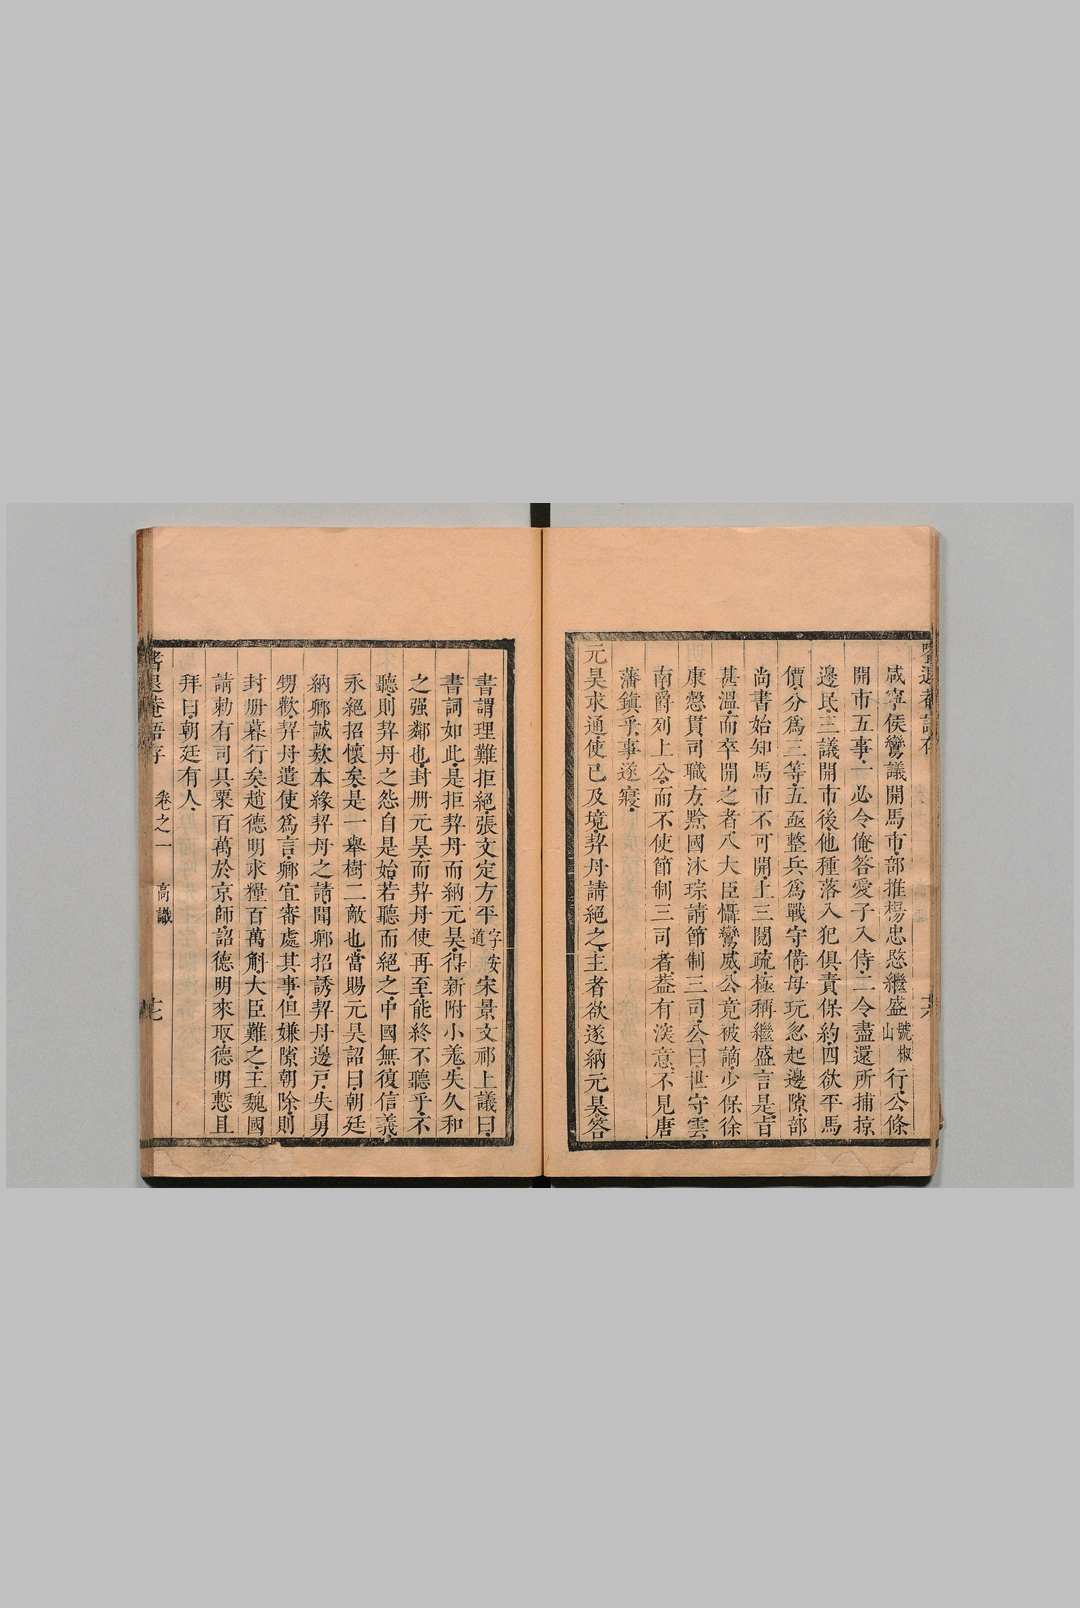 咸寧侯鸞議開馬市部推楊忠愍繼盛號椒山行公條
開市五事一必令俺答愛子入侍二令盡還所捕掠
邊民三議開市後他種落入犯俱責保約四欲平馬
價分爲三等五亟整兵爲戰守備毋玩忽起邊隙部
尚書始知馬市不可開上三閱疏極稱繼盛言是首
甚溫而卒開之者八大臣懾鸞威公竟被謫少保徐
康懿貫司職方黔國沐琮請節制三司公曰世守雲
南爵列上公而不使節制三司者葢有深意不見唐
藩鎮乎事遂寢
元昊求通使已及境契丹請絕之主者欲遂納元昊答
書謂理難拒絕張文定方平字安道宋景文祁上議曰
書詞如此是拒契丹而納元昊得新附小羌失久和
之强鄰也封册元昊而契丹使再至能終不聽乎不
聽則契丹之怨自是始若聽而絕之中國無復信義
永絕招懷矣是一舉樹二敵也當賜元昊詔曰朝廷
納卿誠欵本緣契丹之請聞卿招誘契丹邊戶失舅
甥歡契丹遣使爲言卿宜審處其事但嫌隙朝除則
封册暮行矣趙德明求糧百萬斛大臣難之主魏國
請勅有司具粟百萬於京師詔德明來取德明慙且
拜曰朝廷有人
耆退菴語存 卷之一 高識 七